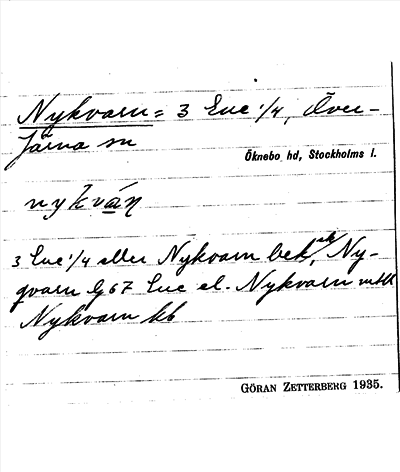 Nykvarn = 3 Ene 1/4, Över-
Järna sn
Öknebo hd, Stockholms l.
nykván
3 Ene 1/4 eller Nykvarn bek, Ny-
qvarn Eg 67 Ene el. Nykvarn
Nykvarn kb
GÖRAN ZETTERBERG 1935.